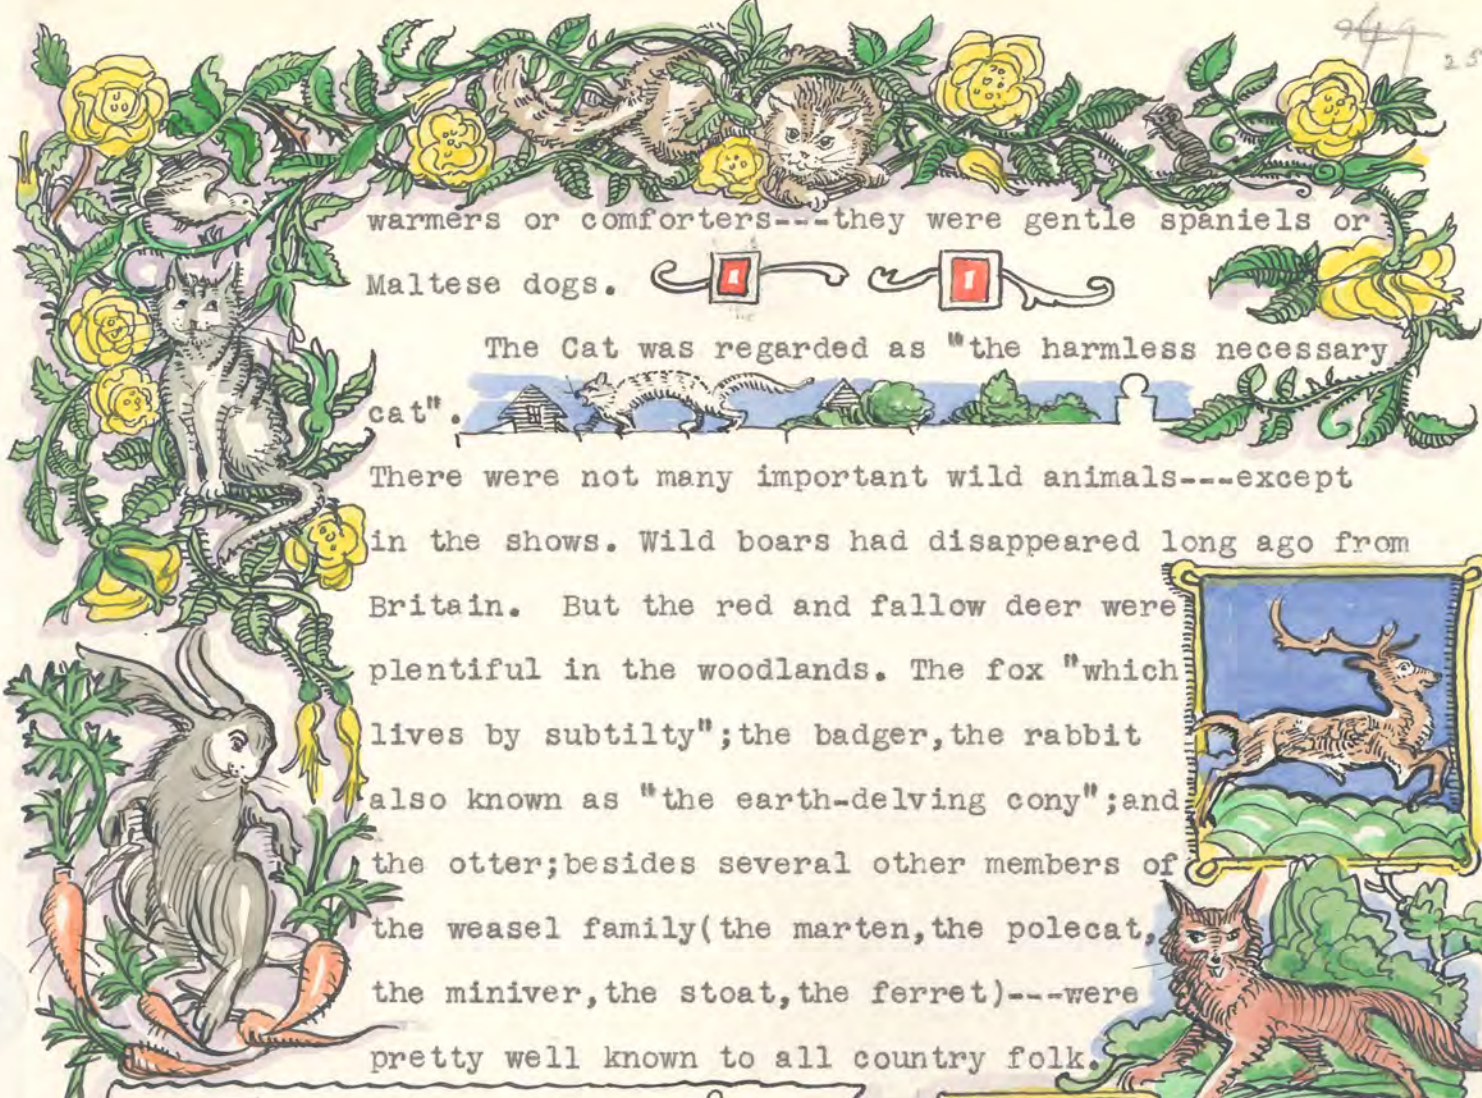 warmers or comforters---they were gentle spaniels or
Maltese dogs.
The Cat was regarded as "the harmless necessary
cat".
There were not many important wild animals---except
in the shows. Wild boars had disappeared long ago from
Britain. But the red and fallow deer were
plentiful in the woodlands. The fox "which
lives by subtilty";the badger,the rabbit
also known as "the earth-delving cony";and
the otter;besides several other members of
the weasel family(the marten,the polecat,
the miniver,the stoat,the ferret)---were
pretty well known to all country folk.